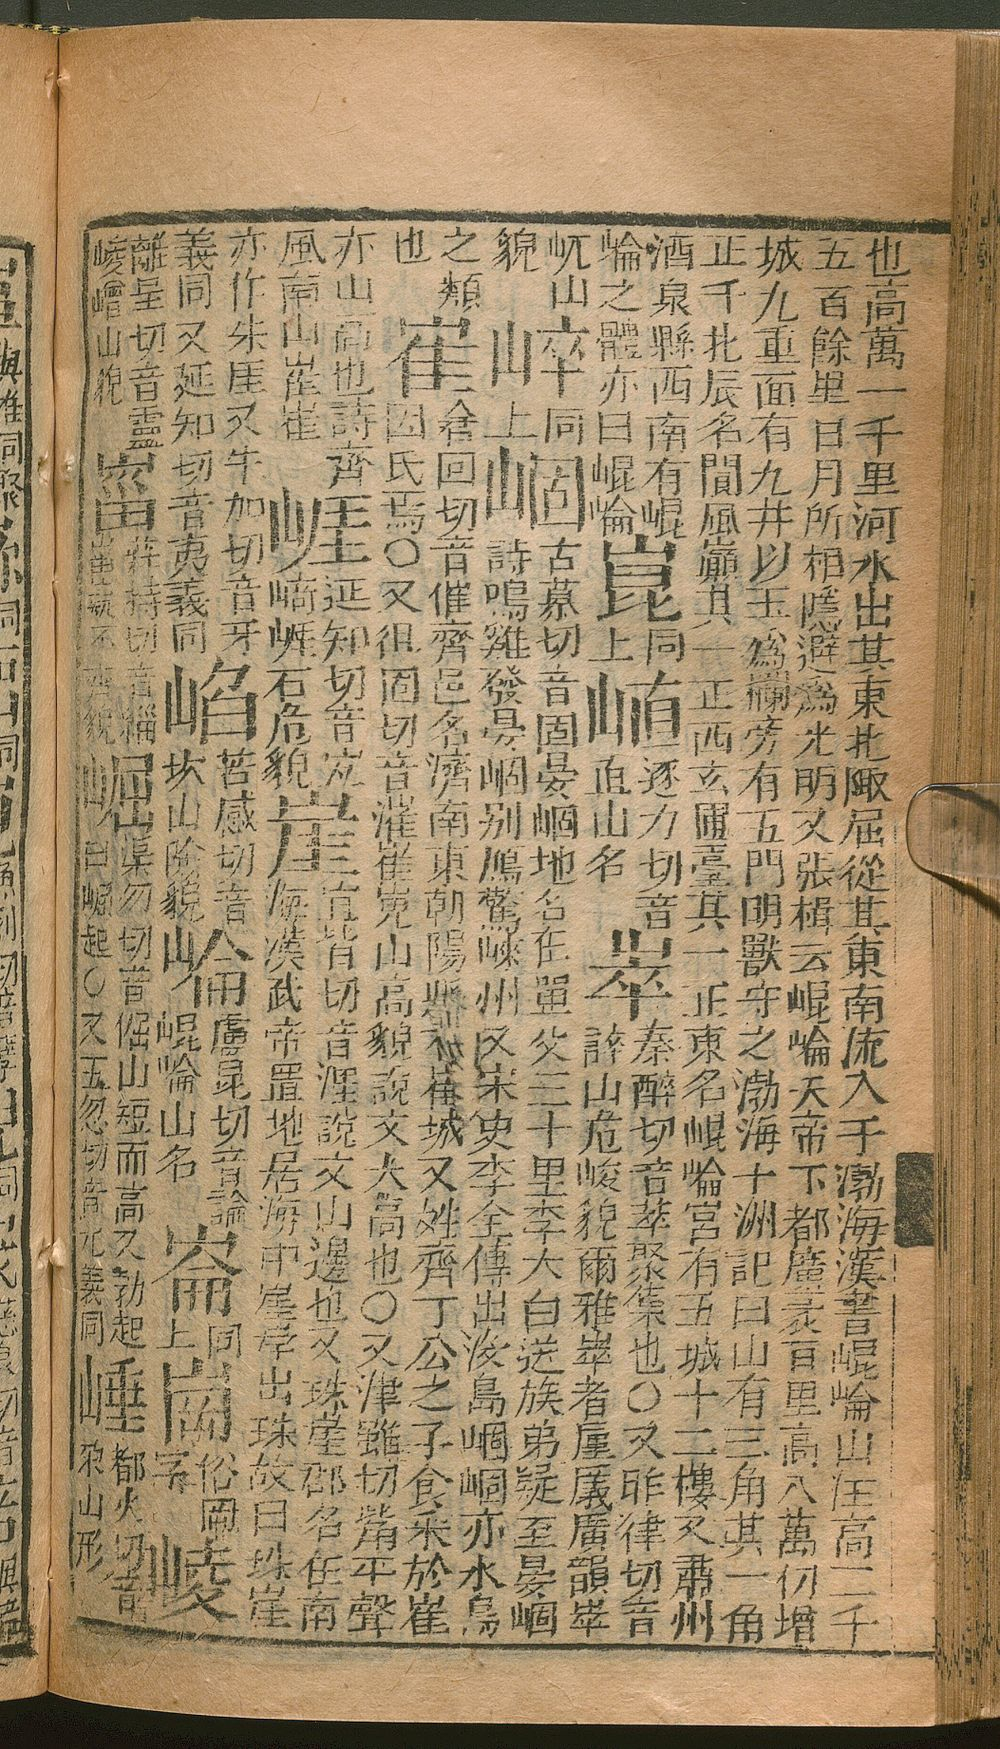 也高萬一千里河水出其東北陬屈從其東南流入于渤海漢書崐崘山注高二千
五百餘里日月所相隱避爲光明又張楫云崐崘天帝下都廣袤百里高八萬仞增
城九重面有九井以玉爲欄旁有五門明獸守之渤海十洲記曰山有三角其一角
正千北辰名閬風巓其一正西玄圃臺其一正東名崐崘宮有五城十二樓又肅州
酒泉縣西南有崐
崘之體亦曰崐崘
崑
同
上
崉
逐力切音
山名
崒
秦醉切音萃聚集也〇又昨律切音
誶山危峻貌爾雅崒者厜㕒廣韻崒
屼山
貌
崪
同
上
崓
古慕切音固晏崓地名在單父三十里李大白送族弟疑至晏崓
詩鳴雞發晏崓别鴈驚崍州又宋史李全傳出沒島崓崓亦水島
之類
也
崔
倉回切音催齊邑名濟南東朝陽縣有崔城又姓齊丁公之子食采於崔
因氏焉〇又徂囘切音漼崔嵬山高貌說文大高也〇又津雖切觜平聲
亦山高也詩齊
風南山崔崔
崕
延知切音宐
崎崕石危貌
崖
宜皆切音涯說文山邊也又珠崖郡名在南
海漢武帝置地居海中崖岸出珠故曰珠崖
亦作朱厓又牛加切音牙
義同又延知切音夷義同
崅
苦感切音
坎山險貌
崘
盧昆切音論
崐崘山名
崙
同
上
崗
俗岡
字
崚
離呈切音靈
崚嶒山貌
崰
莊持切音緇
崛
渠勿切音倔山短而高又勃起
曰崛起〇又五忽切音兀義同
崜
都火切音
朶山形